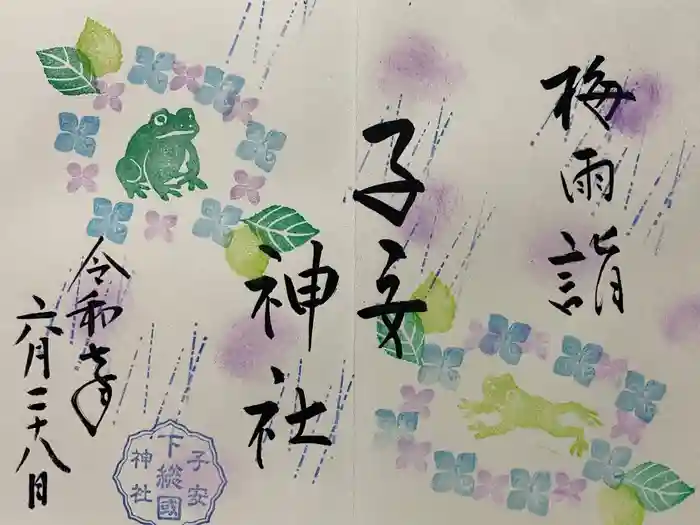 梅雨詣
子安
神社
令和七年
六月二十八日
下総國
子安
神社